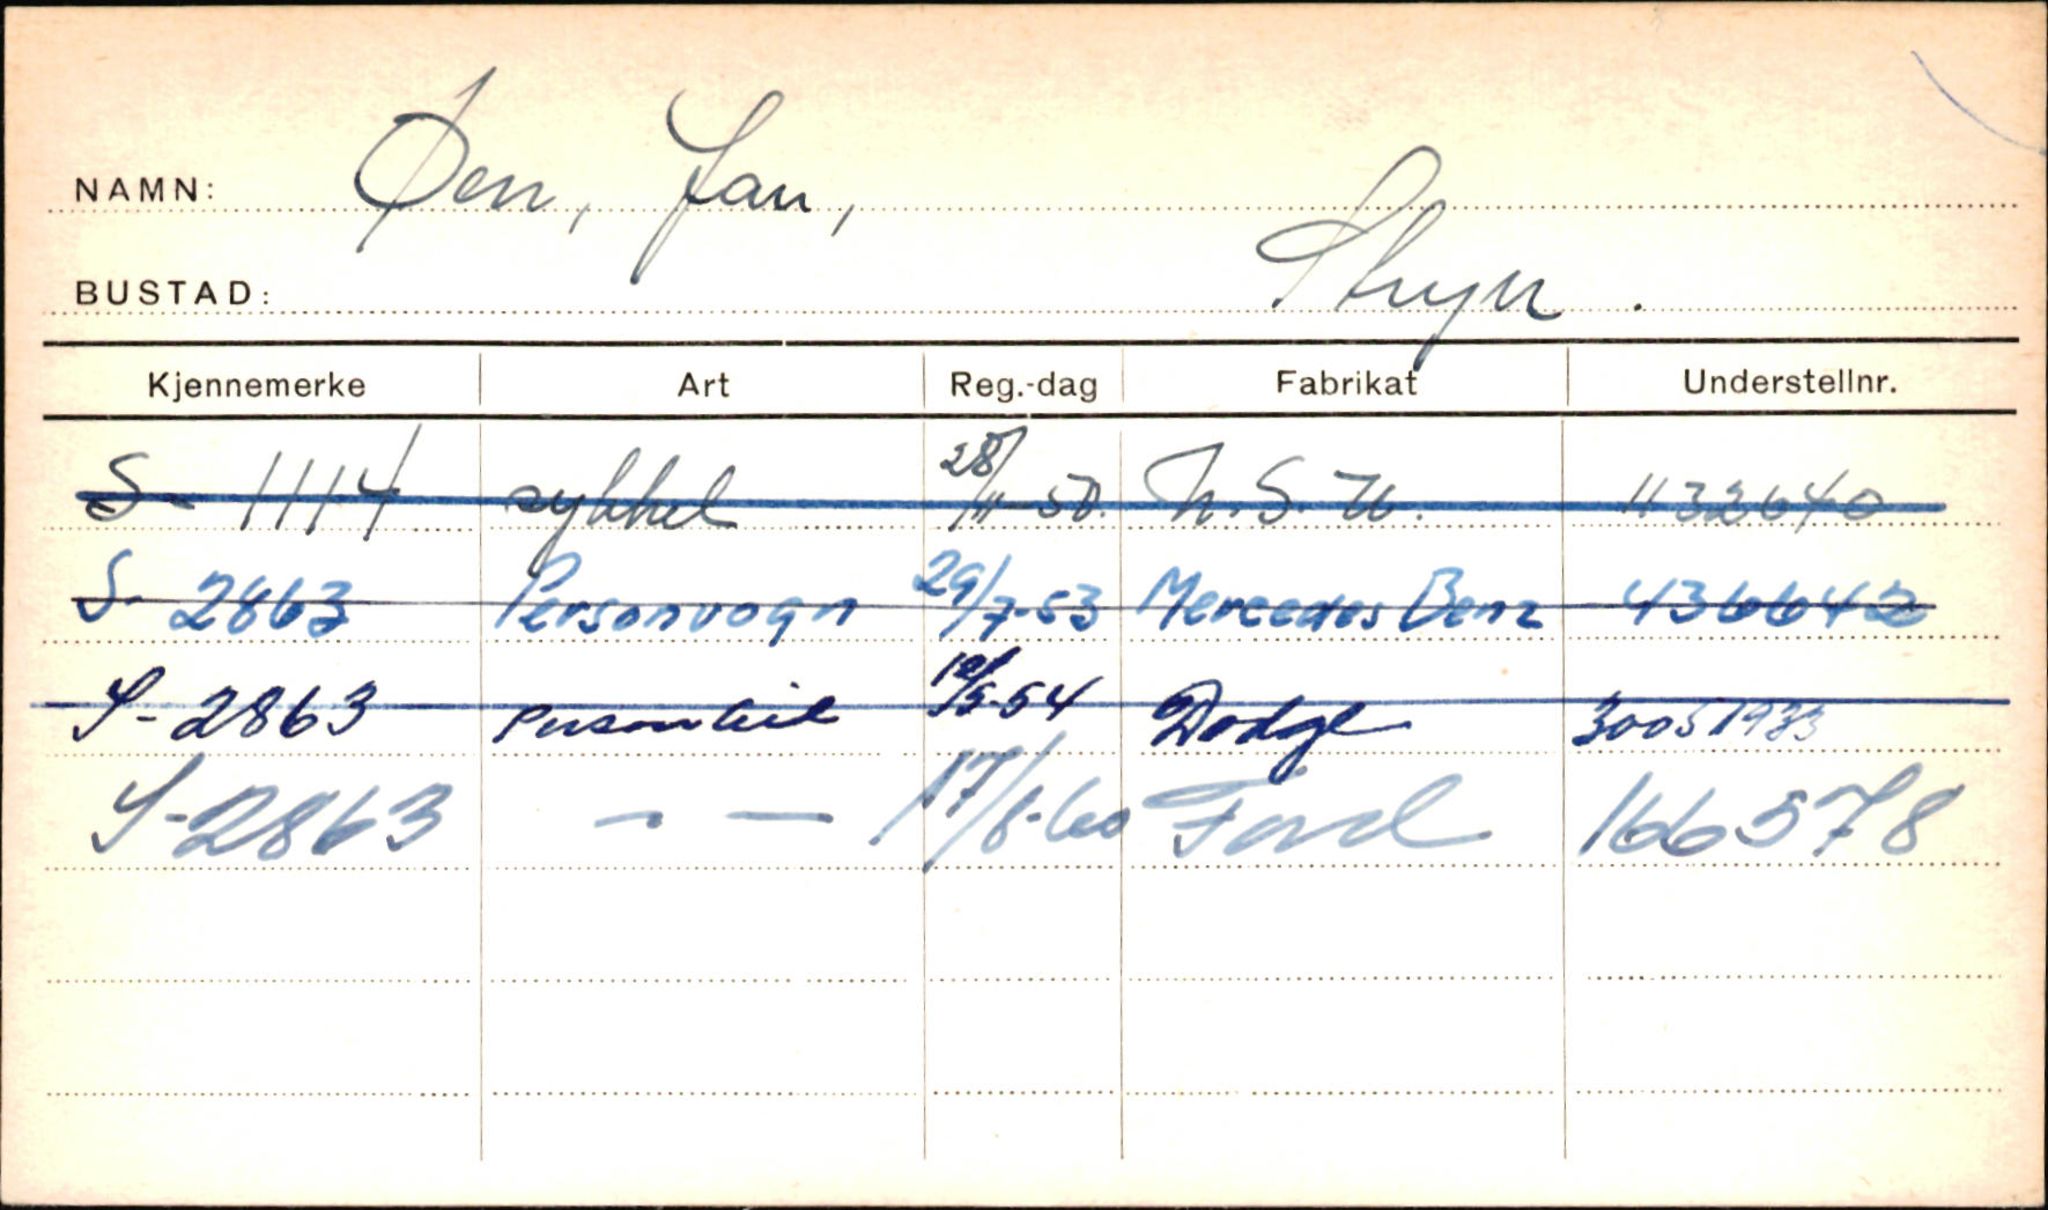 NAMN: Øen, Jan,
BUSTAD: Stryn.
Kjennemerke Art Reg.-dag Fabrikat Understellnr.
S- 1114 sykkel 28/11-50. N.S.U. 1132640
S- 2863 Personvogn 29/7-53 Mercedes Benz 436642
S-2863 personbil 12/5-54 Dodge 30051933
S-2863 - — 17/8-60 Ford 166578